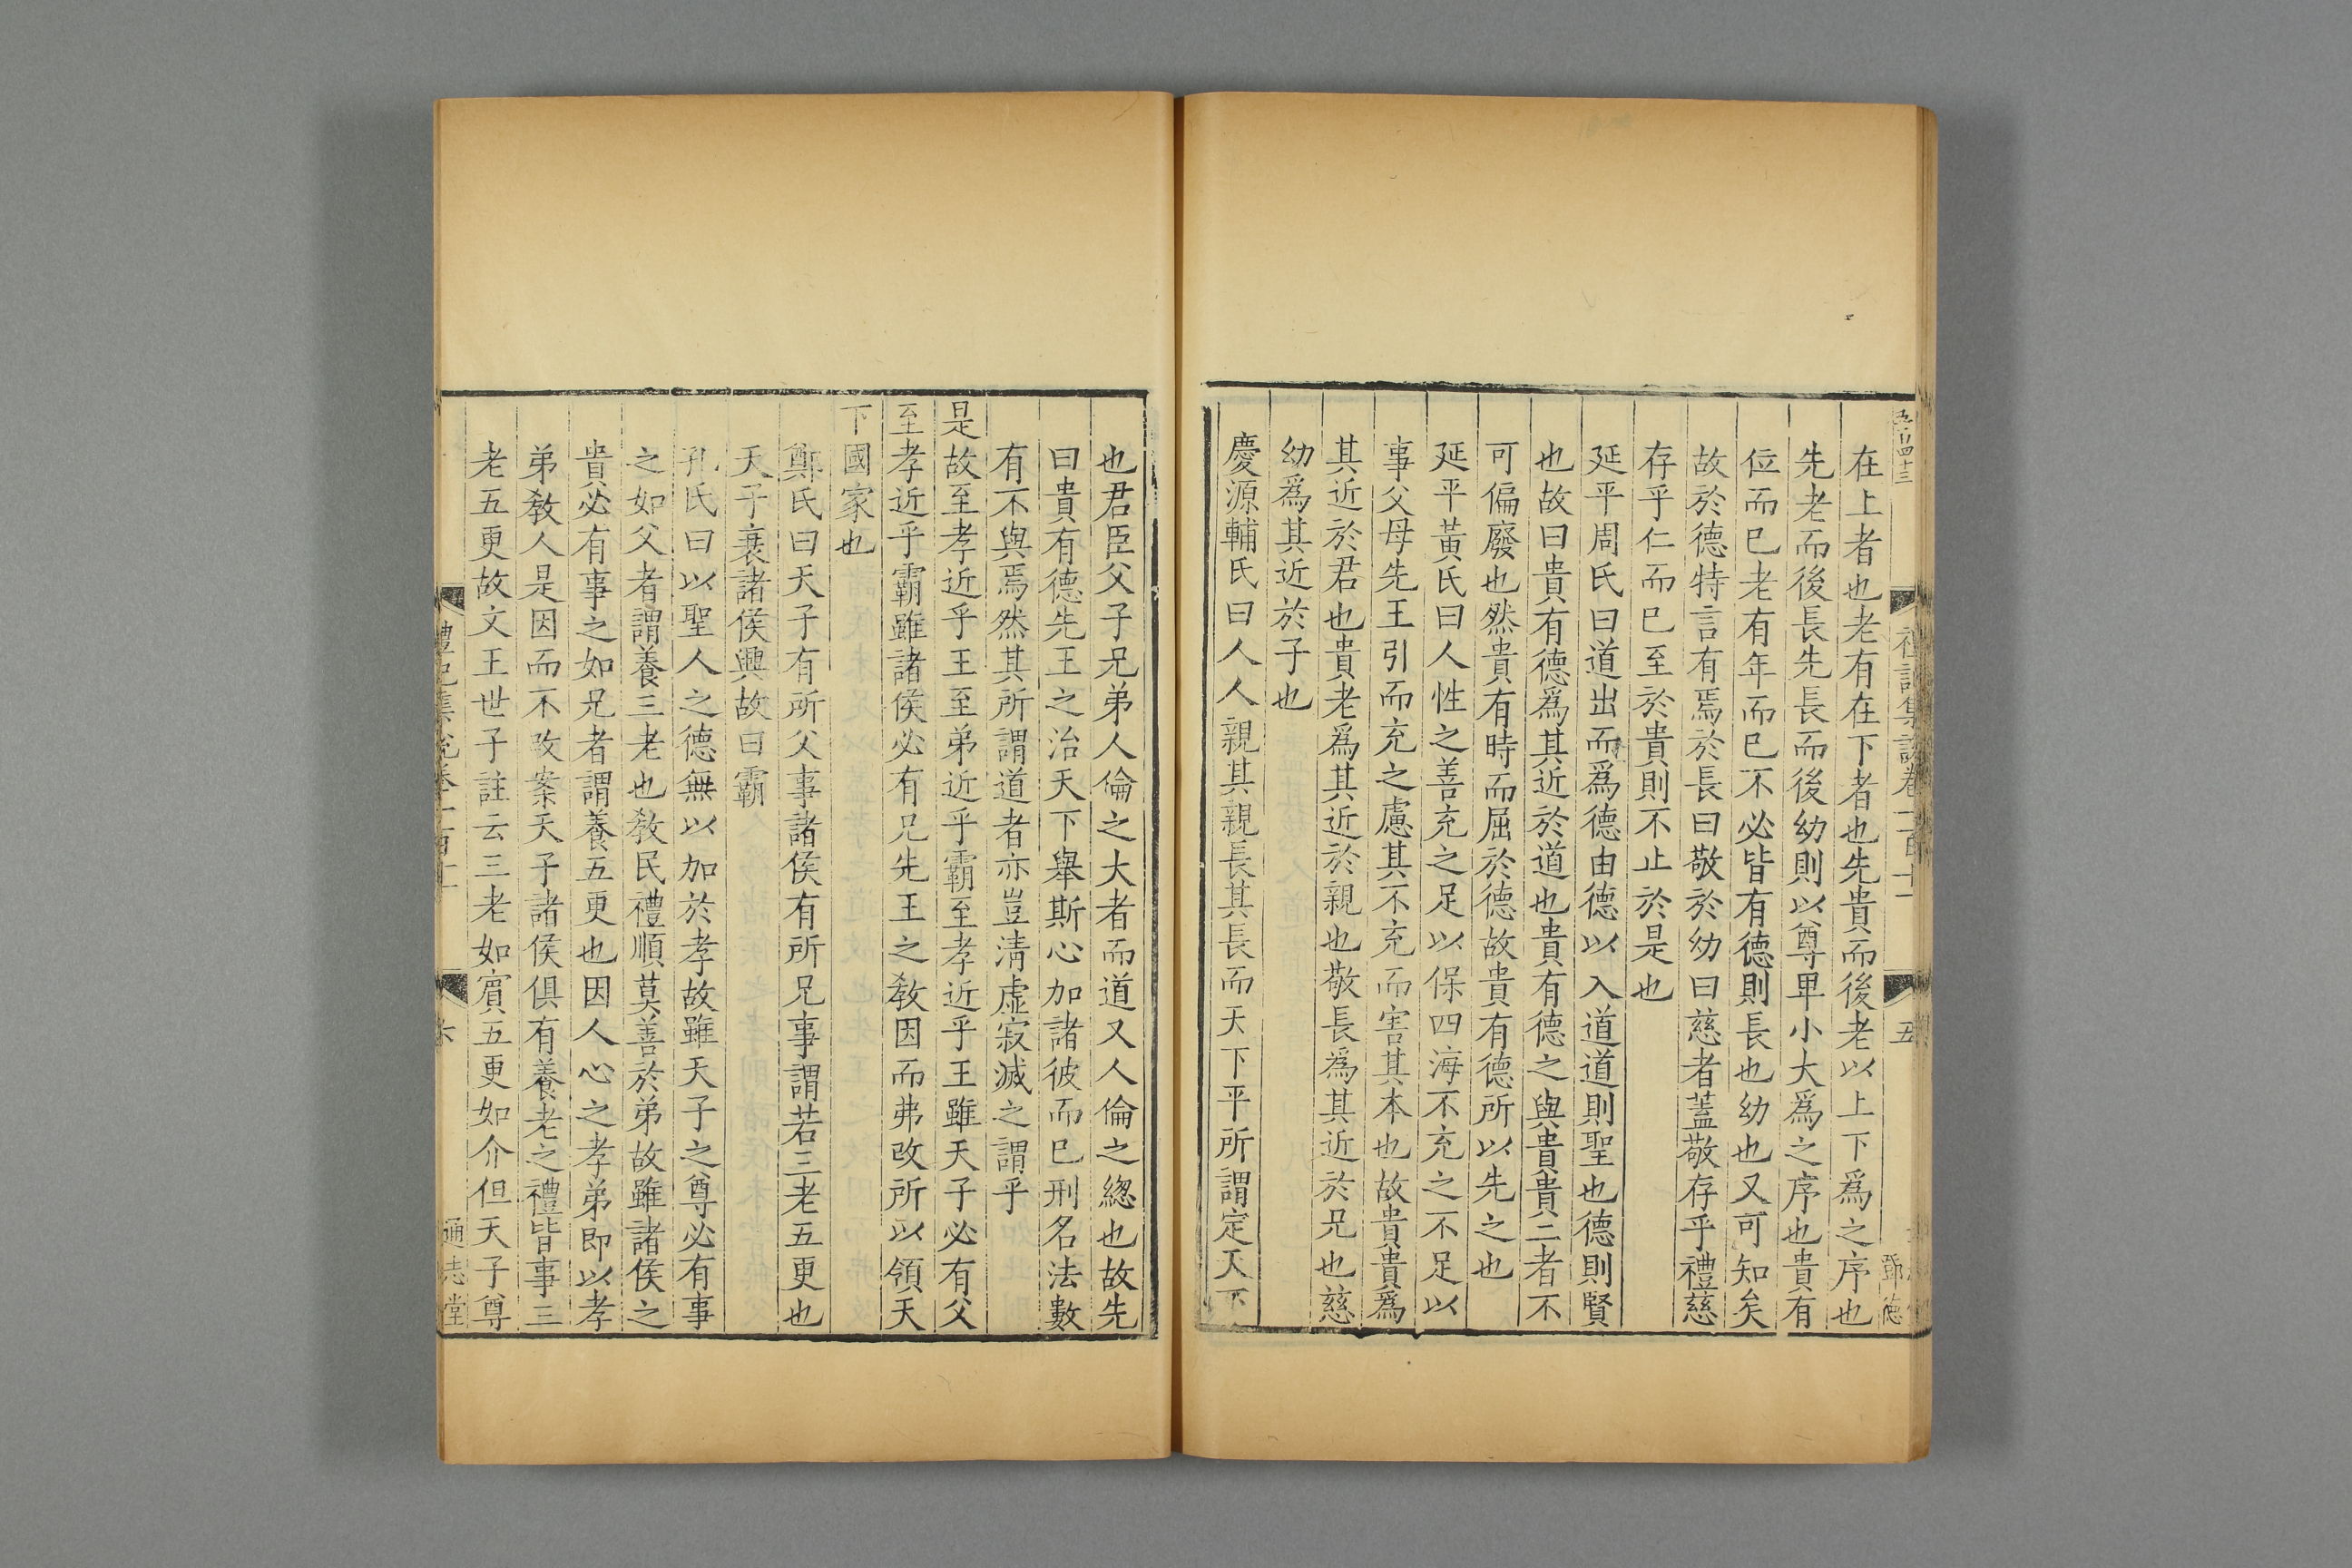 在上者也老有在下者也先貴而後老以上下爲之序也
先老而後長先長而後幼則以尊卑小大爲之序也貴有
位而已老有年而已不必皆有德則長也幼也又可知矣
故於德特言有焉於長曰敬於幼曰慈者蓋敬存乎禮慈
存乎仁而已至於貴則不止於是也
延平周氏曰道出而爲德由德以入道道則聖也德則賢
也故曰貴有德爲其近於道也貴有德之與貴貴二者不
可偏廢也然貴有時而屈於德故貴有德所以先之也
延平黃氏曰人性之善充之足以保四海不充之不足以
事父母先王引而充之慮其不充而害其本也故貴貴爲
其近於君也貴老爲其近於親也敬長爲其近於兄也慈
幼爲其近於子也
慶源輔氏曰人人親其親長其長而天下平所謂定天下
也君臣父子兄弟人倫之大者而道又人倫之緫也故先
曰貴有德先王之治天下舉斯心加諸彼而已刑名法數
有不與焉然其所謂道者亦豈清虛寂滅之謂乎
是故至孝近乎王至弟近乎霸至孝近乎王雖天子必有父
至弟近乎霸雖諸侯必有兄先王之敎因而弗改所以領天
下國家也
鄭氏曰天子有所父事諸侯有所兄事謂若三老五更也
天子衰諸侯興故曰霸
孔氏曰以聖人之德無以加於孝故雖天子之尊必有事
之如父者謂養三老也敎民禮順莫善於弟故雖諸侯之
貴必有事之如兄者謂養五更也因人心之孝弟即以孝
弟敎人是因而不改案天子諸侯俱有養老之禮皆事三
老五更故文王世子註云三老如賓五更如介但天子尊
禮記集說卷一百十一
六
通志堂